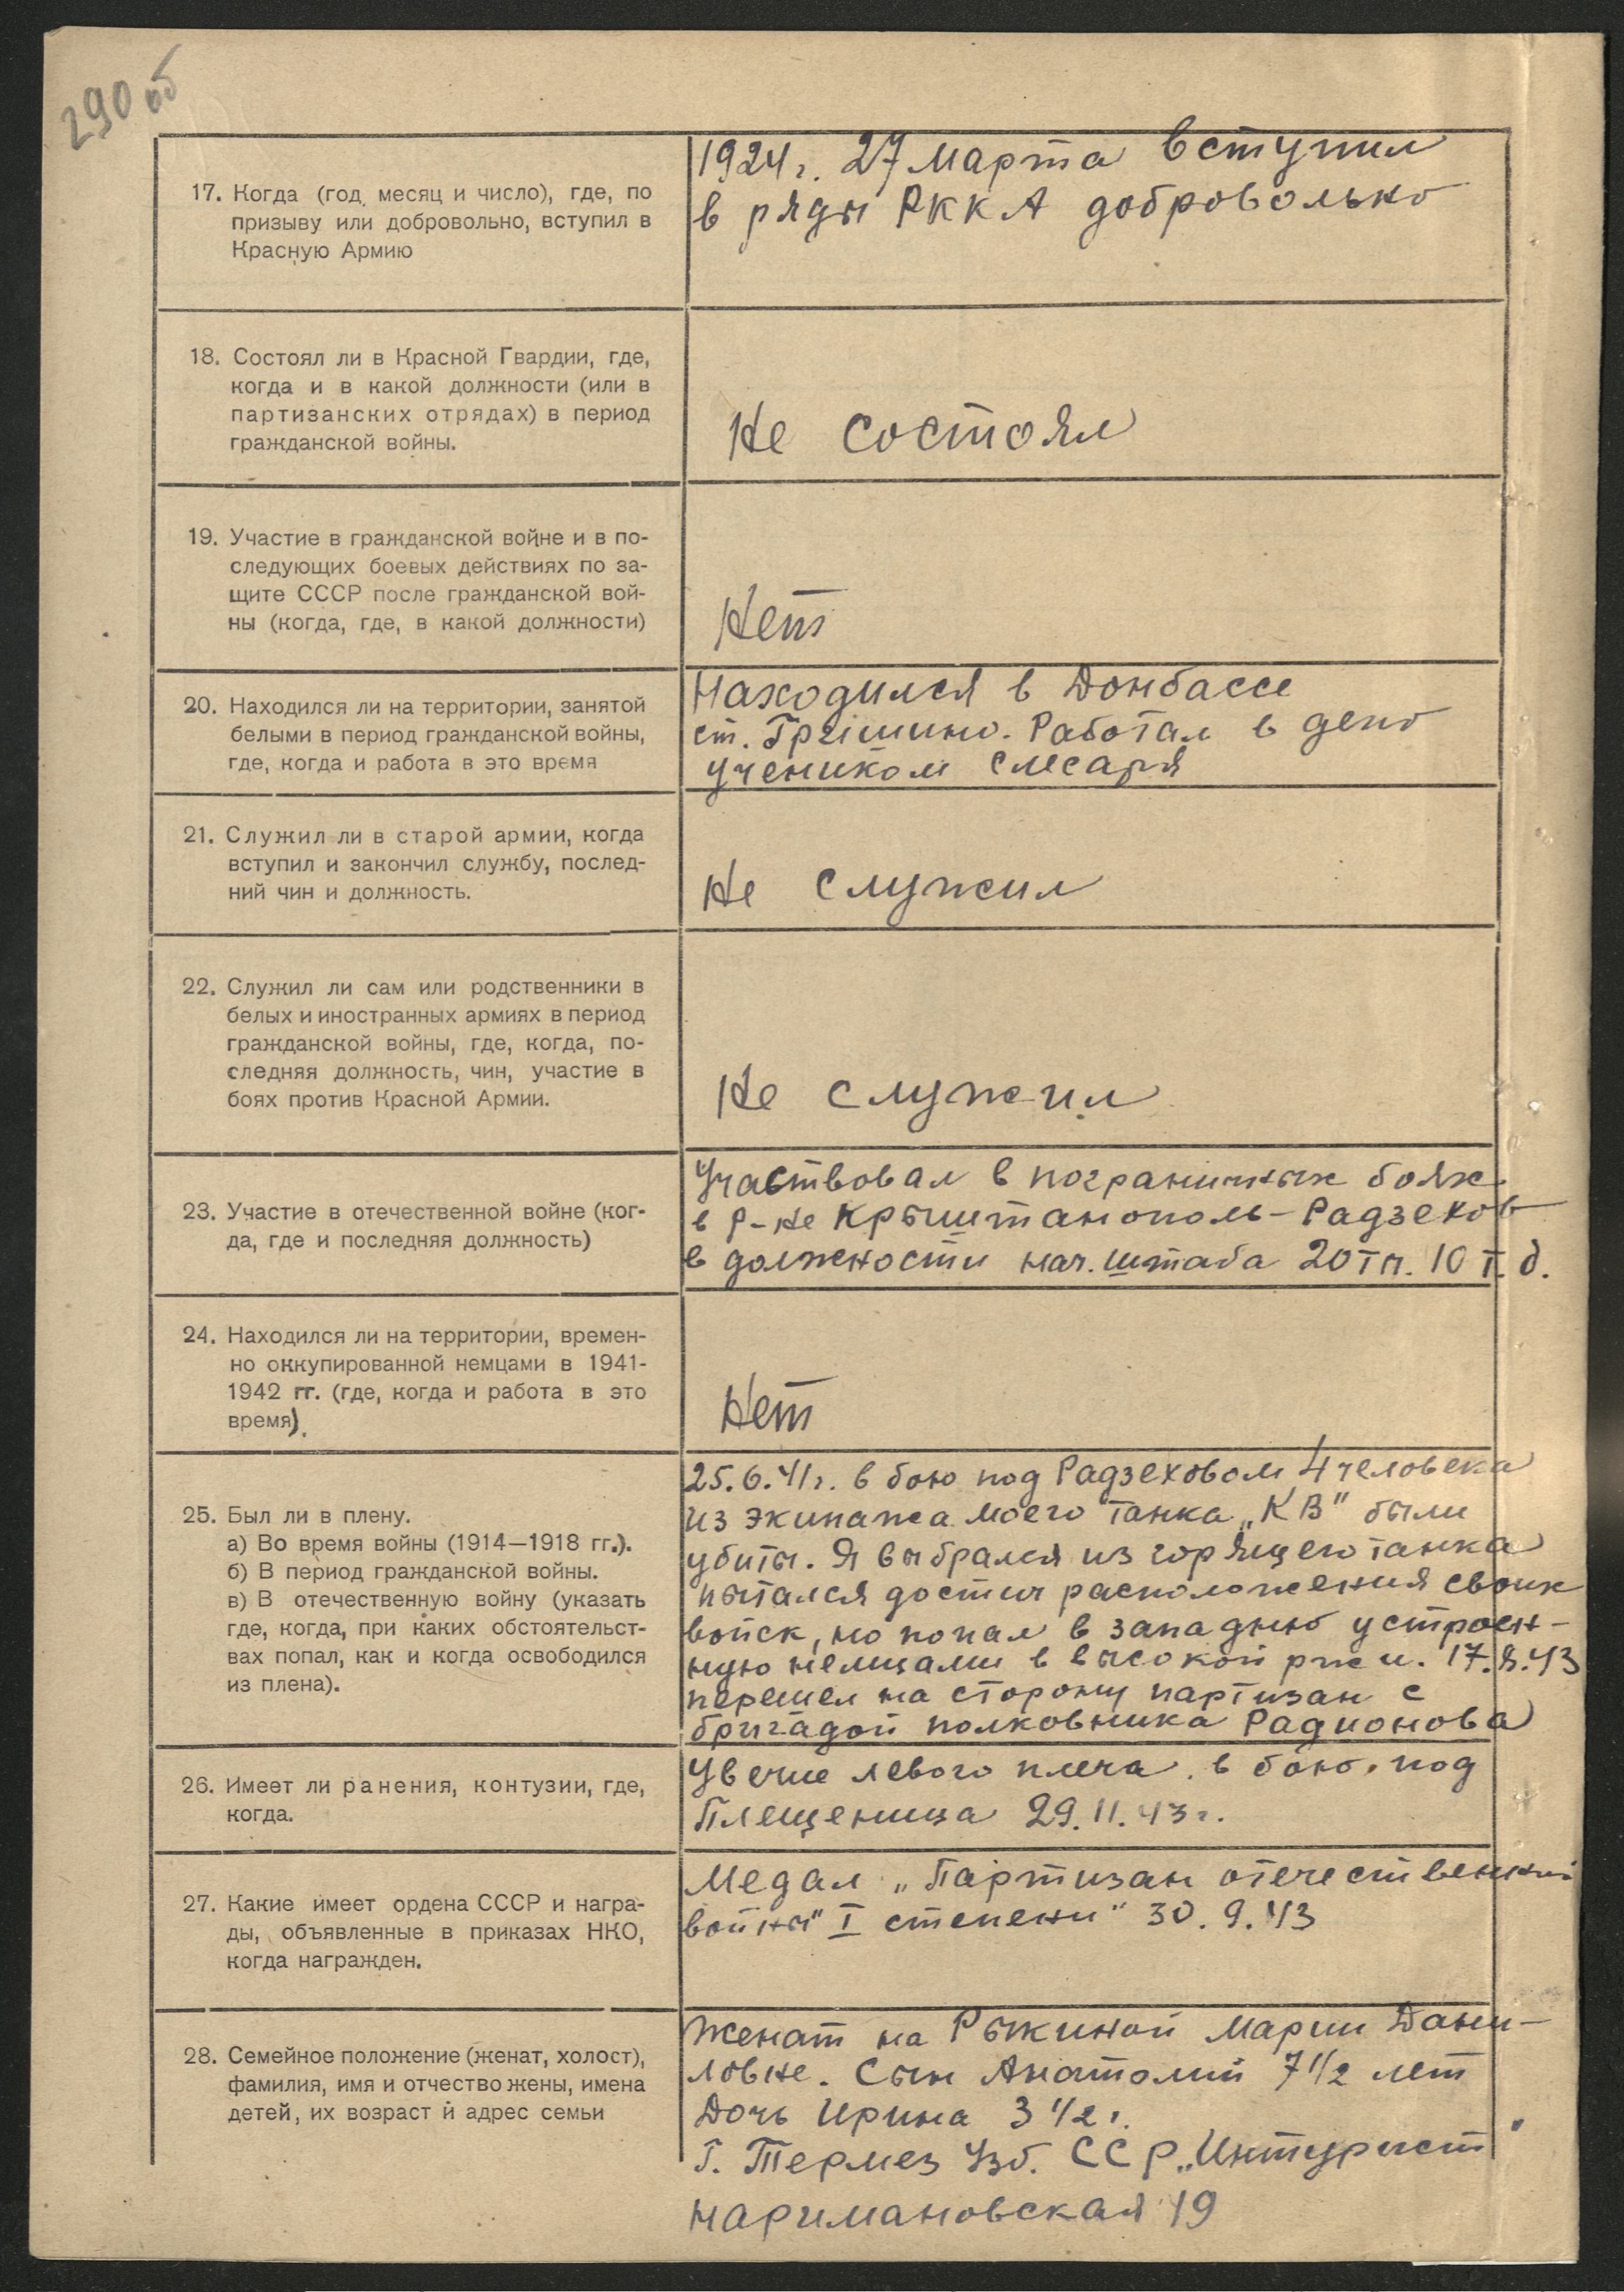 290 об
17. Когда (год, месяц и число), где, по
призыву или добровольно, вступил в
Красную Армию
1924 г. 27 марта вступил
в ряды РККА добровольно
18. Состоял ли в Красной Гвардии, где,
когда и в какой должности (или в
партизанских отрядах) в период
гражданской войны.
Не состоял
19. Участие в гражданской войне и в по-
следующих боевых действиях по за-
щите СССР после гражданской вой-
ны (когда, где, в какой должности)
Нет
20. Находился ли на территории, занятой
белыми в период гражданской войны,
где, когда и работа в это время
Находился в Донбассе
ст. Гришино. Работал в депо
учеником слесаря
21. Служил ли в старой армии, когда
вступил и закончил службу, послед-
ний чин и должность.
Не служил
22. Служил ли сам или родственники в
белых и иностранных армиях в период
гражданской войны, где, когда, по-
следняя должность, чин, участие в
боях против Красной Армии.
Не служил
23. Участие в отечественной войне (ког-
да, где и последняя должность)
Участвовал в пограничных боях
в р-не Крыштанополь-Радзехов
в должности нач. штаба 20 тп. 10 т. д.
24. Находился ли на территории, времен-
но оккупированной немцами в 1941-
1942 гг. (где, когда и работа в это
время).
Нет
25. Был ли в плену.
а) Во время войны (1914—1918 гг.).
б) В период гражданской войны.
в) В отечественную войну (указать
где, когда, при каких обстоятельст-
вах попал, как и когда освободился
из плена).
25.6.41 г. в бою под Радзеховом 4 человека
из экипажа моего танка „КВ" были
убиты. Я выбрался из горящего танка
пытался достич расположения своих
войск, но попал в западню устроен-
ную немцами в высокой ржи. 17.8.43
перешел на сторону партизан с
бригадой полковника Радионова
26. Имеет ли ранения, контузии, где,
когда.
Увечие левого плеча в бою под
Плещеница 29.11.43 г.
27. Какие имеет ордена СССР и награ-
ды, объявленные в приказах НКО,
когда награжден.
Медал „Партизан отечественной
войны" I степени" 30.9.43
28. Семейное положение (женат, холост),
фамилия, имя и отчество жены, имена
детей, их возраст и адрес семьи
Женат на Рыжиной Марии Дани-
ловне. Сын Анатолий 7 1/2 лет
Дочь Ирина 3 1/2 г.
г. Термез Узб. ССР „Интурист"
Наримановская 19